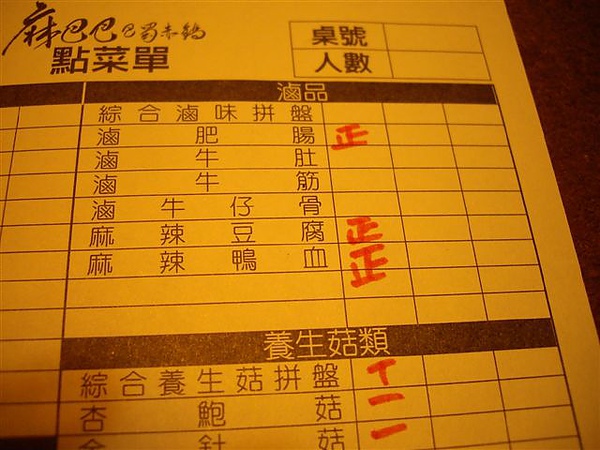 麻巴巴巴蜀赤鍋
點菜單
桌號
人數
滷品
綜合滷味拼盤
滷肥腸 正
滷牛肚
滷牛筋
滷牛仔骨
麻辣豆腐 正
麻辣鴨血 正
養生菇類
綜合養生菇拼盤 丅
杏鮑菇 一
金針菇 一